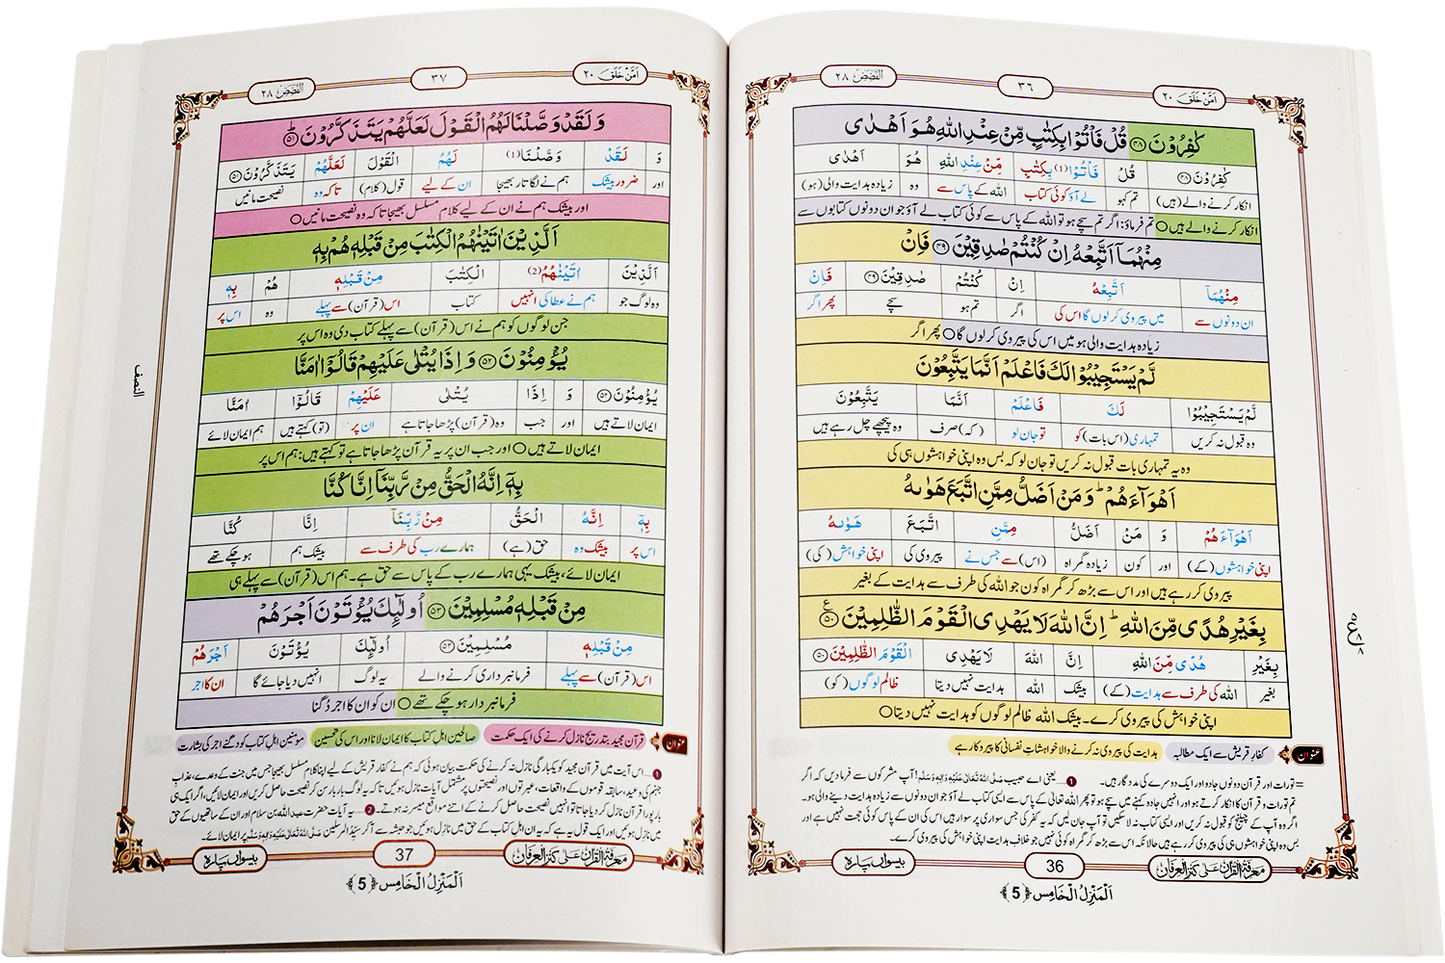 اَمَّنْ خَلَقَ ٢٠
٣٦
القصص ٢٨
كٰفِرُوْنَ ﴿٤٨﴾ قُلْ فَاْتُوْا بِكِتٰبٍ مِّنْ عِنْدِ اللّٰهِ هُوَ اَهْدٰى
كٰفِرُوْنَ ﴿٤٨﴾ قُلْ فَاْتُوْا (1) بِكِتٰبٍ مِّنْ عِنْدِ اللّٰهِ هُوَ اَهْدٰى
انکار کرنے والے (ہیں) تم کہو لے آؤ کوئی کتاب اللہ کے پاس سے وہ زیادہ ہدایت والی (ہو)
انکار کرنے والے ہیں ○ تم فرماؤ: اگر تم سچے ہو تو اللہ کے پاس سے کوئی کتاب لے آؤ جو ان دونوں کتابوں سے
مِنْهُمَاۤ اَتَّبِعْهُ اِنْ كُنْتُمْ صٰدِقِيْنَ ﴿٤٩﴾ فَاِنْ
مِنْهُمَاۤ اَتَّبِعْهُ اِنْ كُنْتُمْ صٰدِقِيْنَ ﴿٤٩﴾ فَاِنْ
ان دونوں سے میں پیروی کرلوں گا اس کی اگر تم ہو سچے پھر اگر
زیادہ ہدایت والی ہو میں اس کی پیروی کرلوں گا ○ پھر اگر
لَّمْ يَسْتَجِيْبُوْا لَكَ فَاعْلَمْ اَنَّمَا يَتَّبِعُوْنَ
لَّمْ يَسْتَجِيْبُوْا لَكَ فَاعْلَمْ اَنَّمَا يَتَّبِعُوْنَ
وہ قبول نہ کریں تمہاری (اس بات) کو تو جان لو (کہ) صرف وہ پیچھے چل رہے ہیں
وہ یہ تمہاری بات قبول نہ کریں تو جان لو کہ بس وہ اپنی خواہشوں ہی کی
اَهْوَآءَهُمْ ؕ وَ مَنْ اَضَلُّ مِمَّنِ اتَّبَعَ هَوٰىهُ
اَهْوَآءَهُمْ وَ مَنْ اَضَلُّ مِمَّنِ اتَّبَعَ هَوٰىهُ
اپنی خواہشوں (کے) اور کون زیادہ گمراہ (اس) سے جس نے پیروی کی اپنی خواہش (کی)
پیروی کر رہے ہیں اور اس سے بڑھ کر گمراہ کون جو اللہ کی طرف سے ہدایت کے بغیر
بِغَيْرِ هُدًى مِّنَ اللّٰهِ ؕ اِنَّ اللّٰهَ لَا يَهْدِى الْقَوْمَ الظّٰلِمِيْنَ ﴿٥٠﴾ ع
بِغَيْرِ هُدًى مِّنَ اللّٰهِ اِنَّ اللّٰهَ لَا يَهْدِى الْقَوْمَ الظّٰلِمِيْنَ ﴿٥٠﴾
بغیر اللہ کی طرف سے ہدایت (کے) بیشک اللہ ہدایت نہیں دیتا ظالم لوگوں (کو)
اپنی خواہش کی پیروی کرے۔ بیشک اللہ ظالم لوگوں کو ہدایت نہیں دیتا ○
عنوان کفار قریش سے ایک مطالبہ ہدایت کی پیروی نہ کرنے والا خواہشات نفسانی کا پیروکار ہے
= تورات اور قرآن دونوں جادو اور ایک دوسرے کی مددگار ہیں۔ 1 ...یعنی اے حبیب صَلَّی اللہُ تَعَالٰی عَلَیْہِ وَاٰلِہٖ وَسَلَّم! آپ مشرکوں سے فرما دیں کہ اگر
تم تورات و قرآن کا انکار کرتے ہو اور انہیں جادو کہنے میں سچے ہو تو پھر اللہ تعالیٰ کے پاس سے ایسی کتاب لے آؤ جو ان دونوں سے زیادہ ہدایت دینے والی ہو۔
اگر وہ آپ کے چیلنج کو قبول نہ کریں اور ایسی کتاب نہ لا سکیں تو آپ جان لیں کہ یہ کفر کی جس سواری پر سوار ہیں اس کی ان کے پاس کوئی حجت نہیں ہے اور
بس وہ اپنی خواہشوں ہی کی پیروی کر رہے ہیں حالانکہ اس سے بڑھ کر گمراہ کوئی نہیں جو خلاف ہدایت اپنی خواہش کی پیروی کرے۔
معرفۃ القرآن علیٰ کنز العرفان
36
بیسواں پارہ
اَلْمَنْزِلُ الْخَامِس ﴿5﴾
اَمَّنْ خَلَقَ ٢٠
٣٧
القصص ٢٨
وَ لَقَدْ وَصَّلْنَا لَهُمُ الْقَوْلَ لَعَلَّهُمْ يَتَذَكَّرُوْنَ ﴿٥١﴾ ؕ
وَ لَقَدْ وَصَّلْنَا (1) لَهُمُ الْقَوْلَ لَعَلَّهُمْ يَتَذَكَّرُوْنَ ﴿٥١﴾
اور ضرور بیشک ہم نے لگاتار بھیجا ان کے لیے قول (کلام) تاکہ وہ نصیحت مانیں
اور بیشک ہم نے ان کے لیے کلام مسلسل بھیجا تاکہ وہ نصیحت مانیں ○
اَلَّذِيْنَ اٰتَيْنٰهُمُ الْكِتٰبَ مِنْ قَبْلِهٖ هُمْ بِهٖ
اَلَّذِيْنَ اٰتَيْنٰهُمُ (2) الْكِتٰبَ مِنْ قَبْلِهٖ هُمْ بِهٖ
وہ لوگ جو ہم نے عطا کی انہیں کتاب اس (قرآن) سے پہلے وہ اس پر
جن لوگوں کو ہم نے اس (قرآن) سے پہلے کتاب دی وہ اس پر
يُؤْمِنُوْنَ ﴿٥٢﴾ وَ اِذَا يُتْلٰى عَلَيْهِمْ قَالُوْۤا اٰمَنَّا
يُؤْمِنُوْنَ ﴿٥٢﴾ وَ اِذَا يُتْلٰى عَلَيْهِمْ قَالُوْۤا اٰمَنَّا
ایمان لاتے ہیں اور جب وہ (قرآن) پڑھا جاتا ہے ان پر (تو) کہتے ہیں ہم ایمان لائے
ایمان لاتے ہیں ○ اور جب ان پر یہ قرآن پڑھا جاتا ہے تو کہتے ہیں: ہم اس پر
بِهٖۤ اِنَّهُ الْحَقُّ مِنْ رَّبِّنَاۤ اِنَّا كُنَّا
بِهٖۤ اِنَّهُ الْحَقُّ مِنْ رَّبِّنَاۤ اِنَّا كُنَّا
اس پر بیشک وہ حق (ہے) ہمارے رب کی طرف سے بیشک ہم ہو چکے تھے
ایمان لائے، بیشک یہی ہمارے رب کے پاس سے حق ہے۔ ہم اس (قرآن) سے پہلے ہی
مِنْ قَبْلِهٖ مُسْلِمِيْنَ ﴿٥٣﴾ اُولٰٓئِكَ يُؤْتَوْنَ اَجْرَهُمْ
مِنْ قَبْلِهٖ مُسْلِمِيْنَ ﴿٥٣﴾ اُولٰٓئِكَ يُؤْتَوْنَ اَجْرَهُمْ
اس (قرآن) سے پہلے فرمانبرداری کرنے والے یہ لوگ انہیں دیا جائے گا ان کا اجر
فرمانبردار ہو چکے تھے ○ ان کو ان کا اجر دُگنا
عنوان قرآن مجید بتدریج نازل کرنے کی ایک حکمت صالحین اہل کتاب کا ایمان لانا اور اس کی تحسین مومنین اہل کتاب کو دگنے اجر کی بشارت
1 ...اس آیت میں قرآن مجید کو یکبارگی نازل نہ کرنے کی حکمت بیان ہوئی کہ ہم نے کفار قریش کے لیے اپنا کلام مسلسل بھیجا جس میں جنت کے وعدے، عذاب
جہنم کی وعید، سابقہ قوموں کے واقعات، عبرتوں اور نصیحتوں پر مشتمل آیات نازل ہوئیں تاکہ یہ لوگ بار بار سن کر نصیحت حاصل کریں اور ایمان لائیں، اگر ایک ہی
بار پورا قرآن نازل کر دیا جاتا تو انہیں نصیحت حاصل کرنے کے اتنے مواقع میسر نہ ہوتے۔ 2 ...یہ آیات حضرت عبد اللہ بن سلام اور ان کے ساتھیوں کے حق
میں نازل ہوئیں اور ایک قول یہ ہے کہ یہ ان اہل کتاب کے حق میں نازل ہوئیں جو حبشہ سے آکر سیّد المرسلین صَلَّی اللہُ تَعَالٰی عَلَیْہِ وَاٰلِہٖ وَسَلَّم پر ایمان لائے۔
معرفۃ القرآن علیٰ کنز العرفان
37
بیسواں پارہ
اَلْمَنْزِلُ الْخَامِس ﴿5﴾
النصف